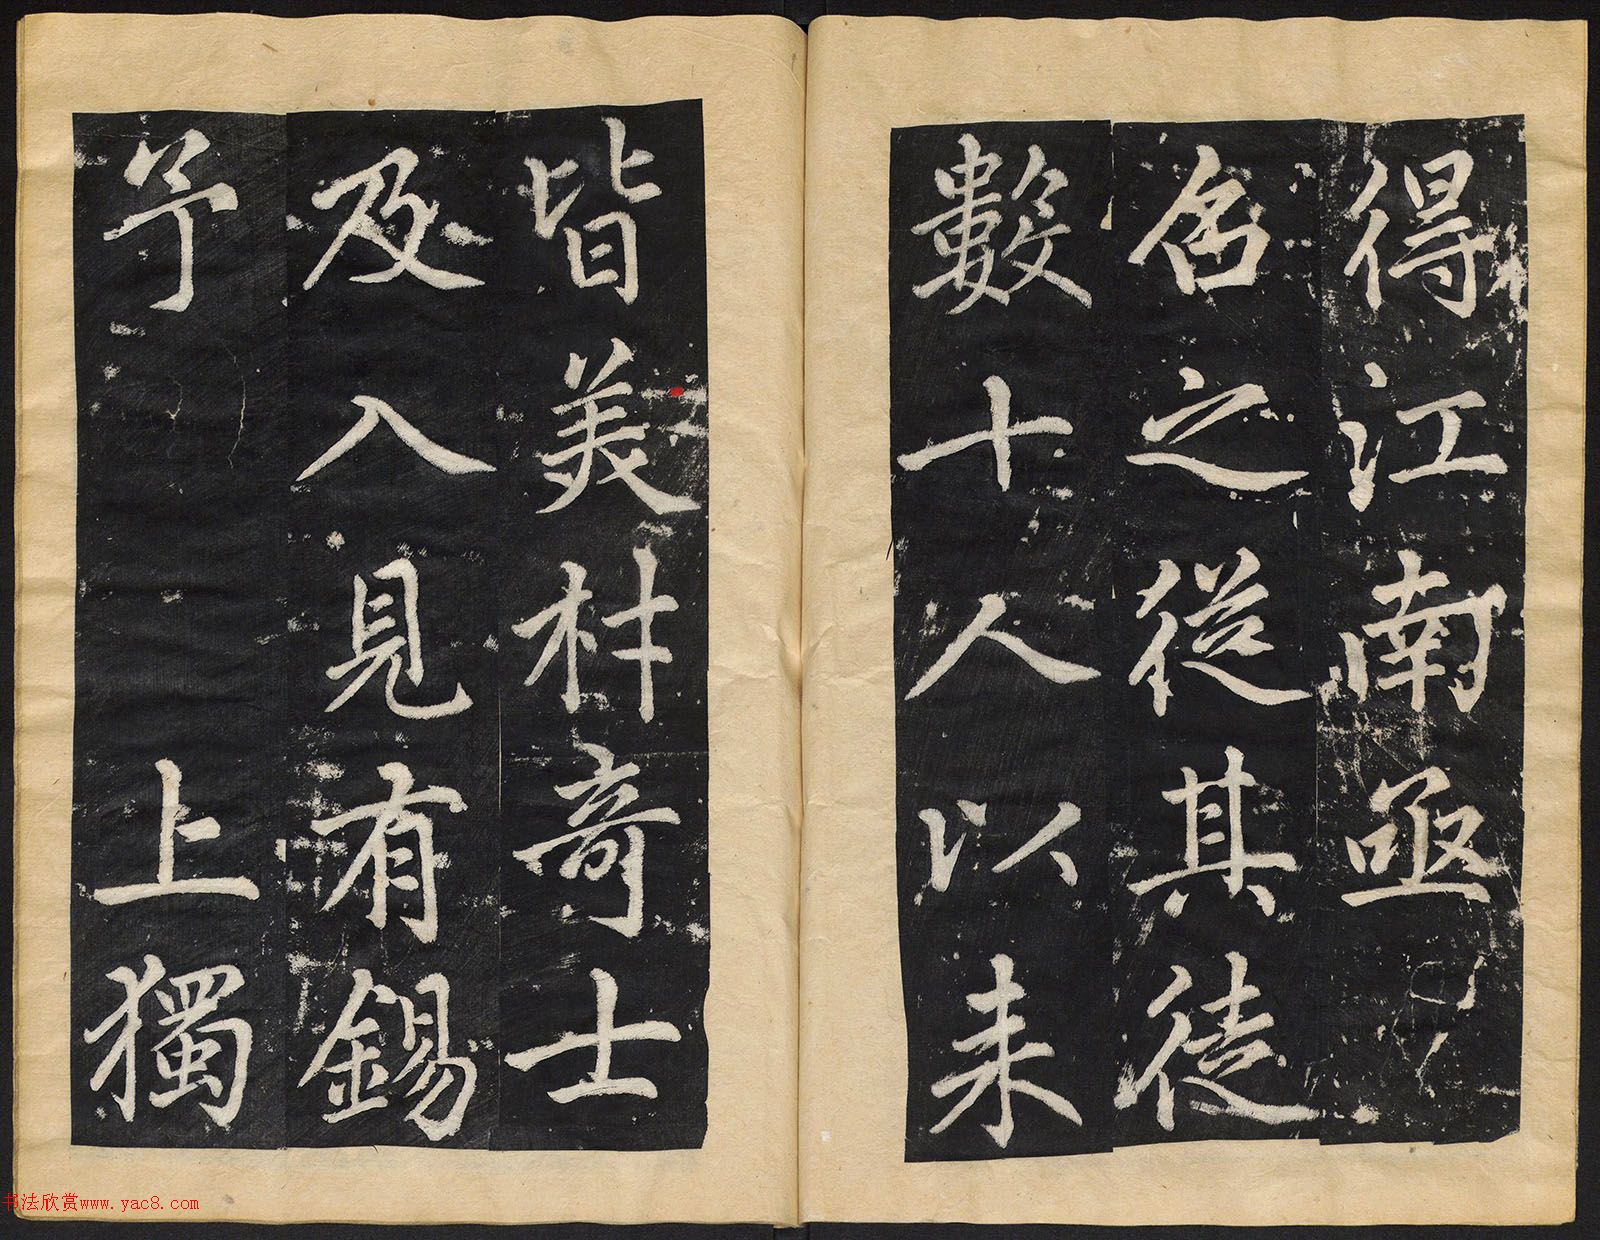 得江南亟
召之從其徒
數十人以来
皆美材奇士
及入見有錫
予 上獨
书法欣赏www.yac8.com